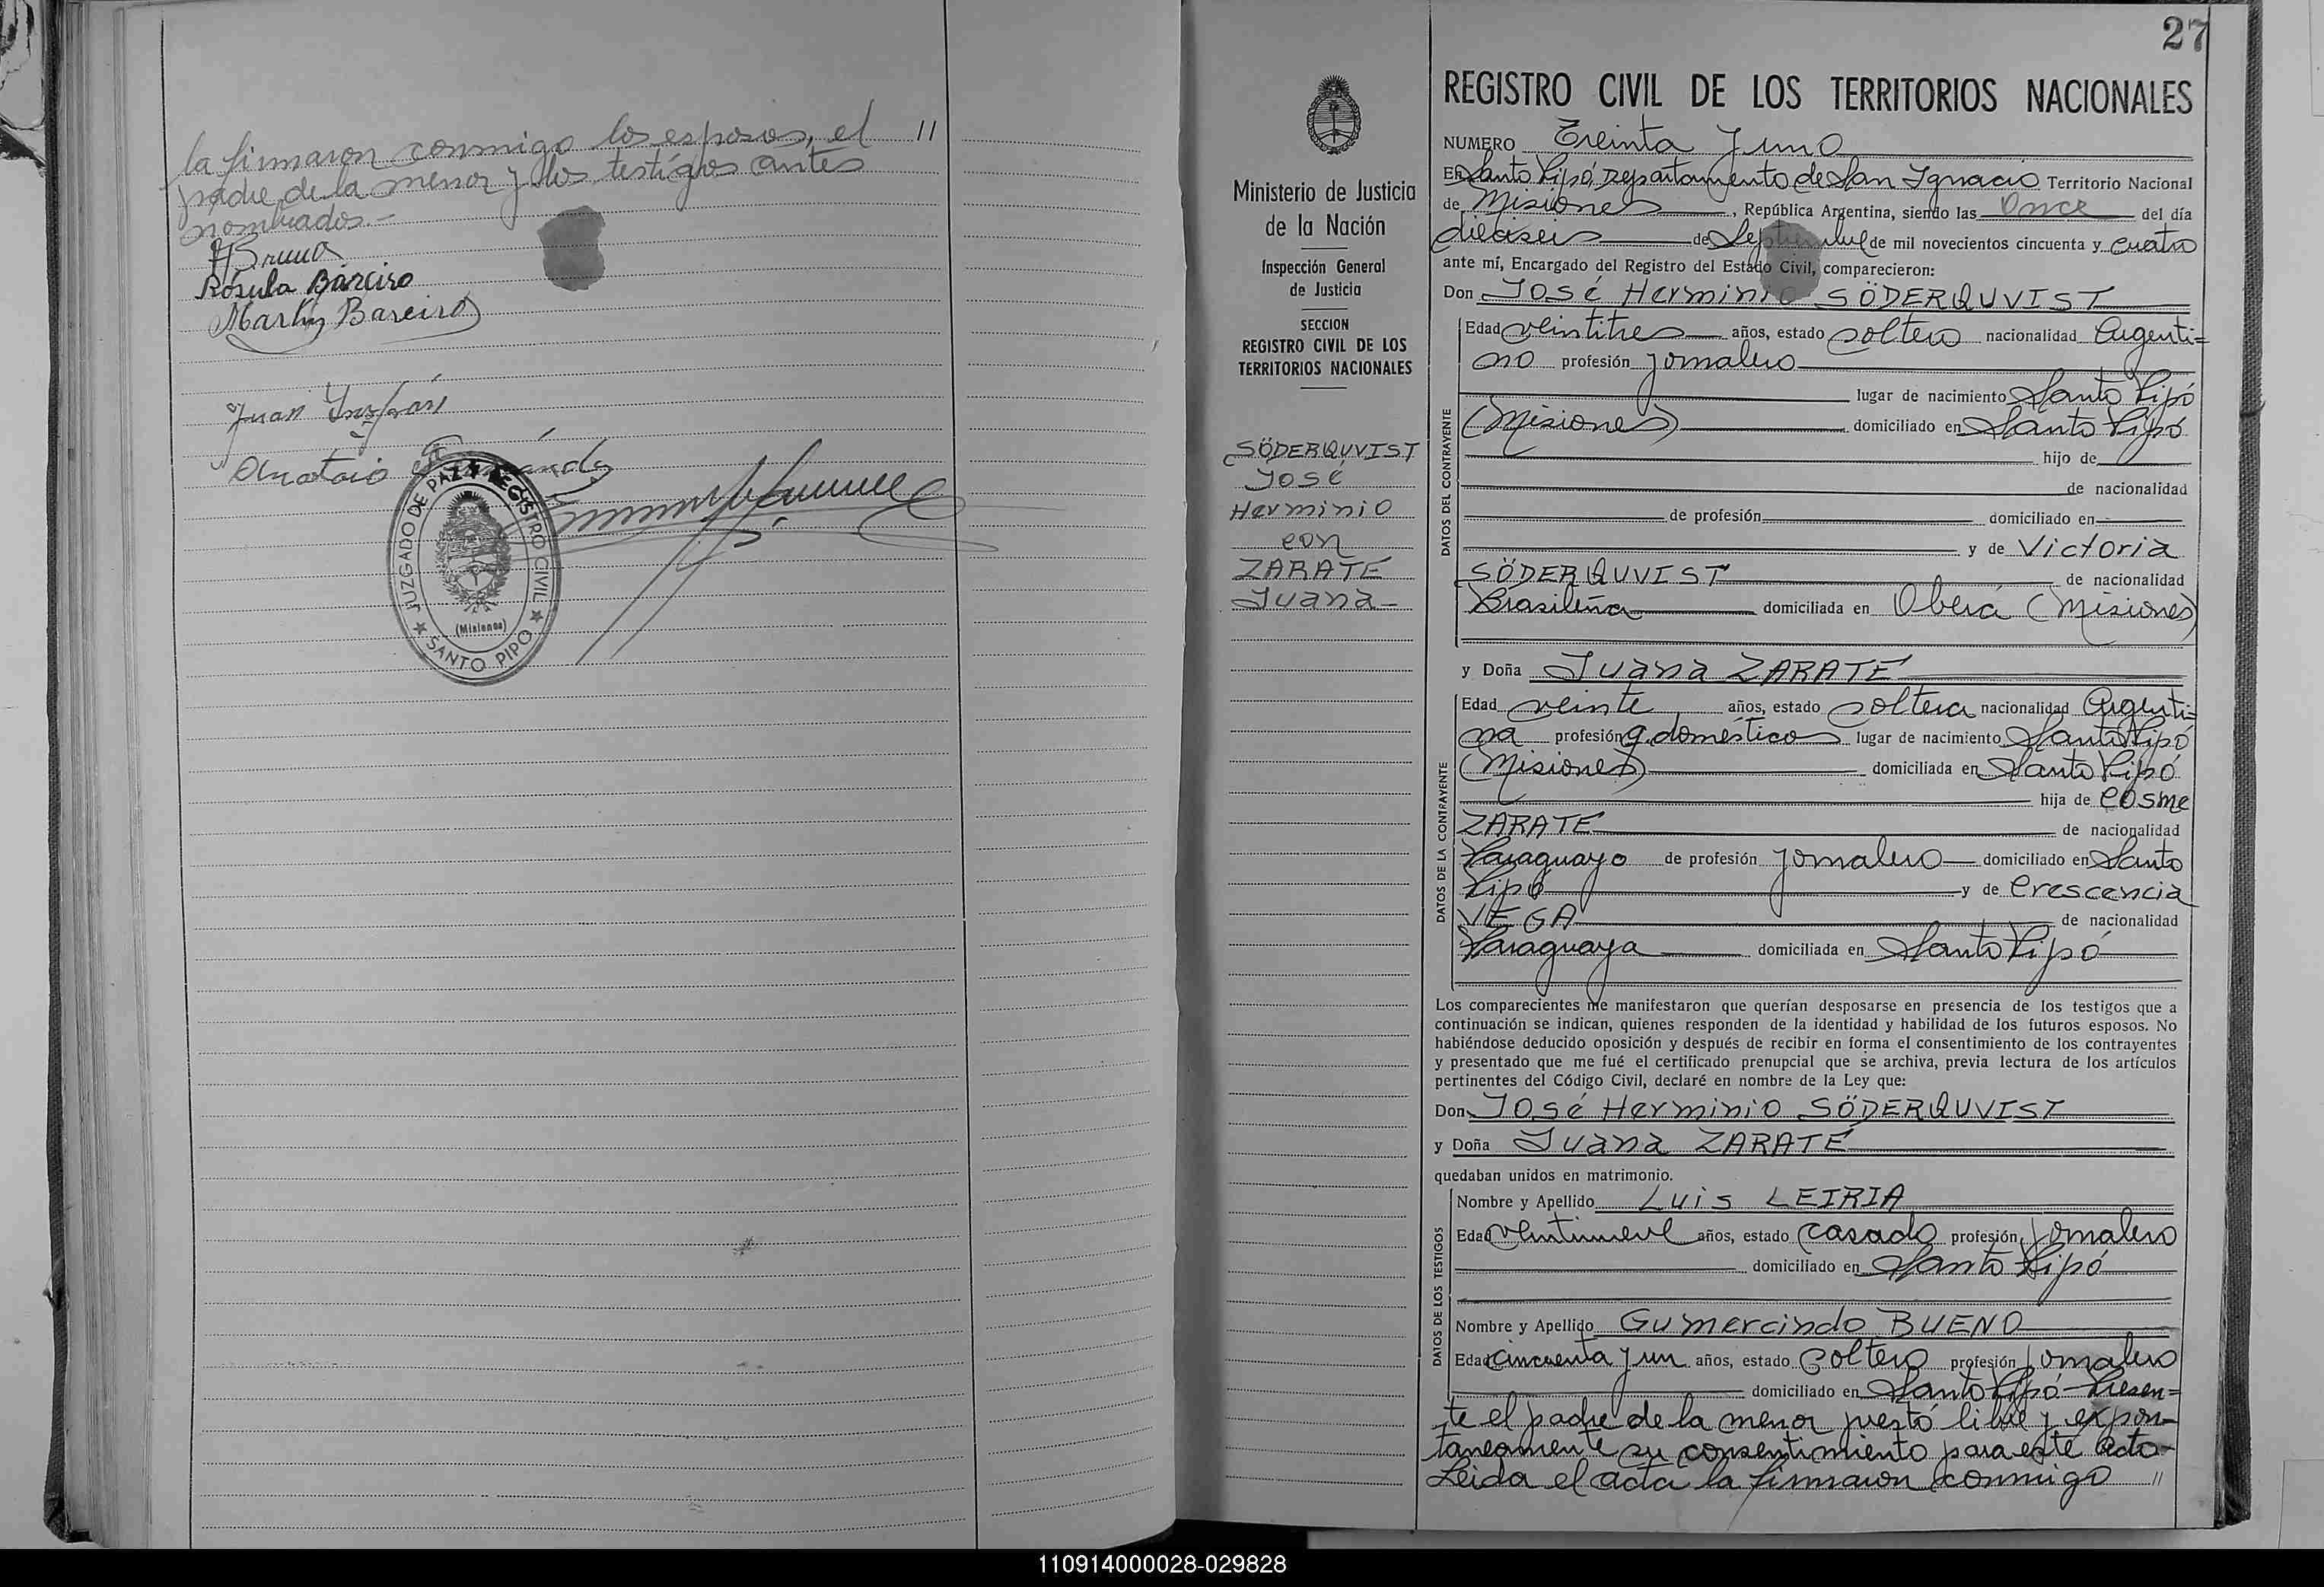 la firmaron conmigo los esposos, el //
padre de la menor y los testigos antes
nombrados.-
Rosula Bareiro
Martin Bareiro
Juan
JUZGADO DE PAZ Y REGISTRO CIVIL
(Misiones)
★ SANTO PIPO ★
27
Ministerio de Justicia
de la Nación
Inspección General
de Justicia
SECCION
REGISTRO CIVIL DE LOS
TERRITORIOS NACIONALES
SÖDERQUVIST
José
Herminio
con
ZARATE
Juana-
REGISTRO CIVIL DE LOS TERRITORIOS NACIONALES
NUMERO Treinta y uno
En Santo Pipó, Departamento de San Ignacio Territorio Nacional
de Misiones, República Argentina, siendo las once del día
dieciseis de Septiembre de mil novecientos cincuenta y cuatro
ante mí, Encargado del Registro del Estado Civil, comparecieron:
Don José Herminio SÖDERQUVIST
DATOS DEL CONTRAYENTE
Edad veintitres años, estado soltero nacionalidad Argenti=
no profesión jornalero
lugar de nacimiento Santo Pipó
(Misiones) domiciliado en Santo Pipó
hijo de
de nacionalidad
de profesión domiciliado en
y de Victoria
SÖDERQUVIST de nacionalidad
Brasileña domiciliada en Oberá (Misiones)
y Doña Juana ZARATE
DATOS DE LA CONTRAYENTE
Edad veinte años, estado soltera nacionalidad Argenti=
na profesión q. domésticos lugar de nacimiento Santo Pipó
(Misiones) domiciliada en Santo Pipó
hija de Cosme
ZARATE de nacionalidad
Paraguayo de profesión jornalero domiciliado en Santo
Pipó y de Crescencia
VEGA de nacionalidad
Paraguaya domiciliada en Santo Pipó
Los comparecientes me manifestaron que querían desposarse en presencia de los testigos que a
continuación se indican, quienes responden de la identidad y habilidad de los futuros esposos. No
habiéndose deducido oposición y después de recibir en forma el consentimiento de los contrayentes
y presentado que me fué el certificado prenupcial que se archiva, previa lectura de los artículos
pertinentes del Código Civil, declaré en nombre de la Ley que:
Don José Herminio SÖDERQUVIST
y Doña Juana ZARATE
quedaban unidos en matrimonio.
DATOS DE LOS TESTIGOS
Nombre y Apellido Luis LEIRIA
Edad ventinueve años, estado casado profesión jornalero
domiciliado en Santo Pipó
Nombre y Apellido Gumercindo BUENO
Edad cincuenta y un años, estado soltero profesión jornalero
domiciliado en Santo Pipó-Presen=
te el padre de la menor prestó libre y expon-
taneamente su consentimiento para este acto-
Leida el acta la firmaron conmigo //
110914000028-029828